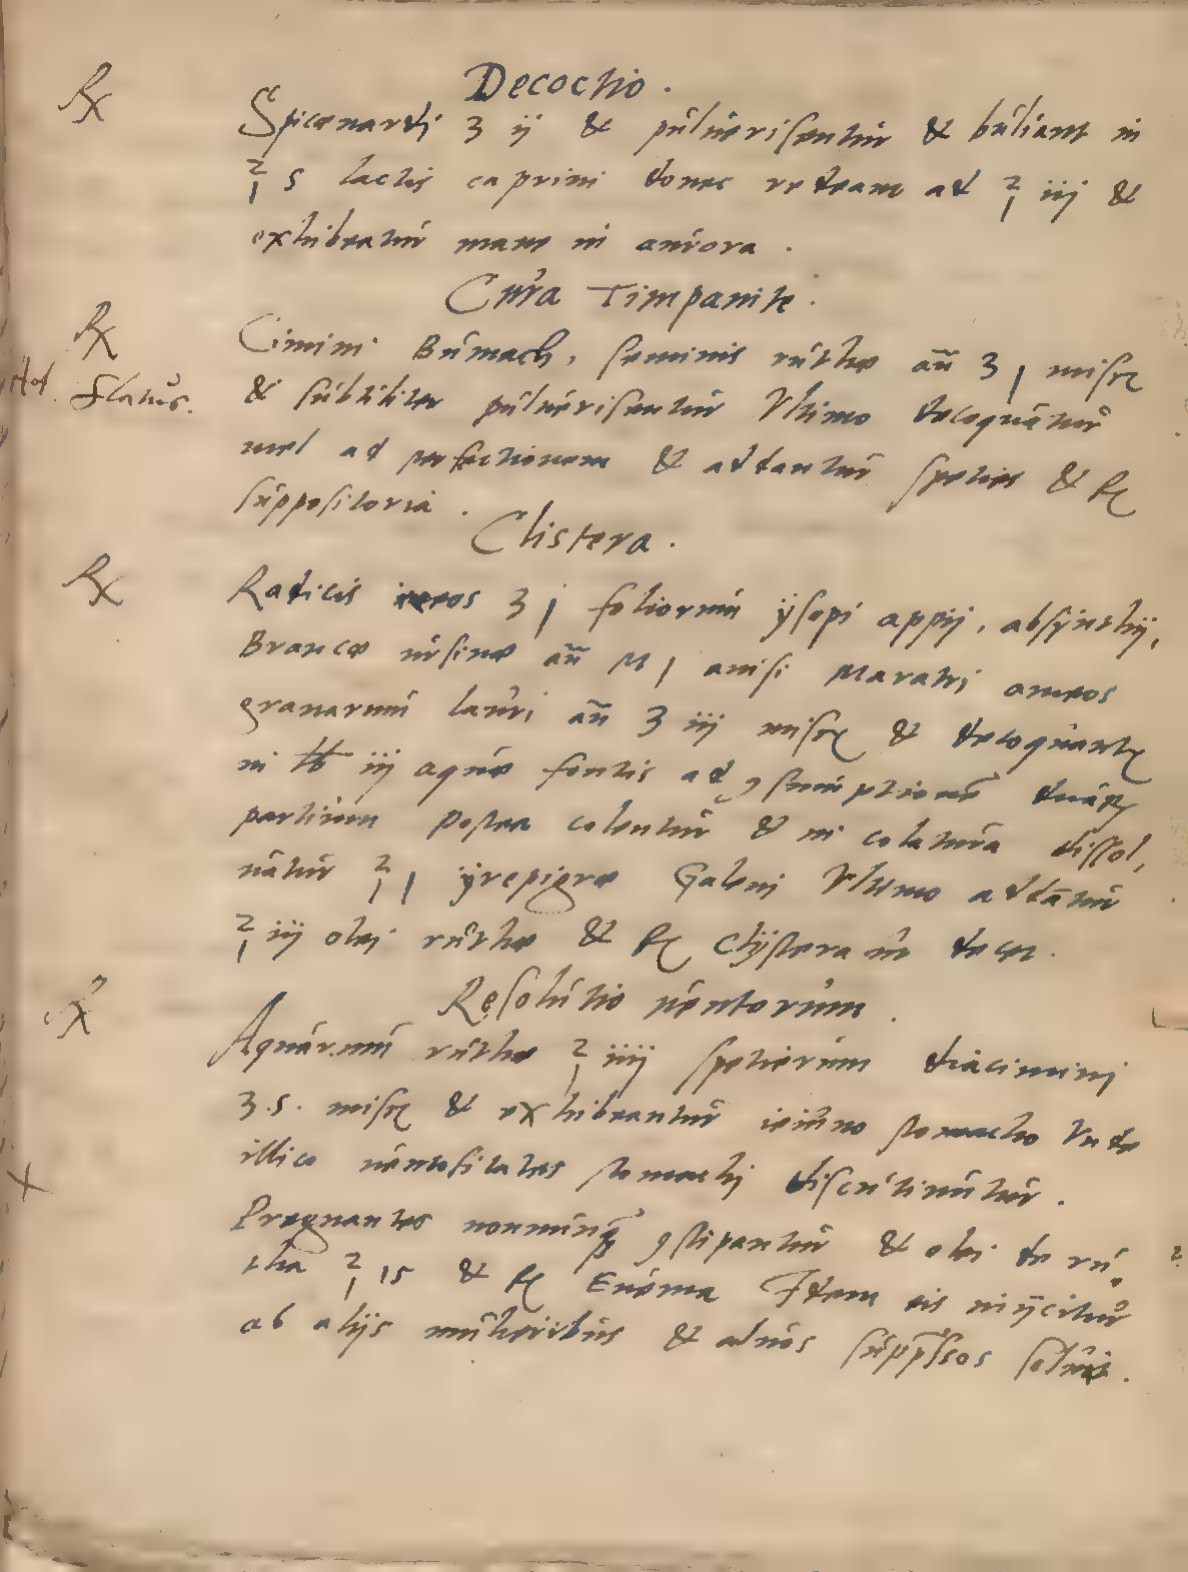 Decoctio.
℞ Spicænardi ʒ ij & puluerisentur & buliant in
℥ 5 lactis caprini donec redeant ad ℥ iij &
exhibeatur mane in aurora.
Cura Timpanite.
℞ Cimini Bumach, seminis ruthæ añ ʒ j misce
flatus. & subtiliter puluerisentur Vltimo decoquatur
mel ad perfectionem & addantur speties & fꝭ
suppositoria.
Clistera.
℞ Radicis ireos ʒ j foliorum ÿsopi appij, absÿnthij,
Brancæ ursinæ añ M j anisi Maratri ameos
granarum lauri añ ʒ iij misce & decoquantꝭ
in ℔ iij aquæ fontis ad ꝯsumptionẽ duaꝝ
partium postea colentur & in colatura dissol,
uatur ℥ j ÿrepigræ Galeni Vltimo addãtur
℥ iij olei ruthæ & fꝭ Clÿstera ut decet.
Resolutio uentorum.
℞ Aquarum ruthæ ℥ iiij spetierum diacimini
ʒ.s. misce & exhibeantur ieiuno stomacho Vnde
illico uentositates stomachi discutiuntur.
Pregnantes nonnunq̃ ꝯstipantur & olei de ru,
tha ℥ js & fꝭ Enema Idem eis inijcitur
ab alijs mulieribus & aluos supp̃ssos soluit.